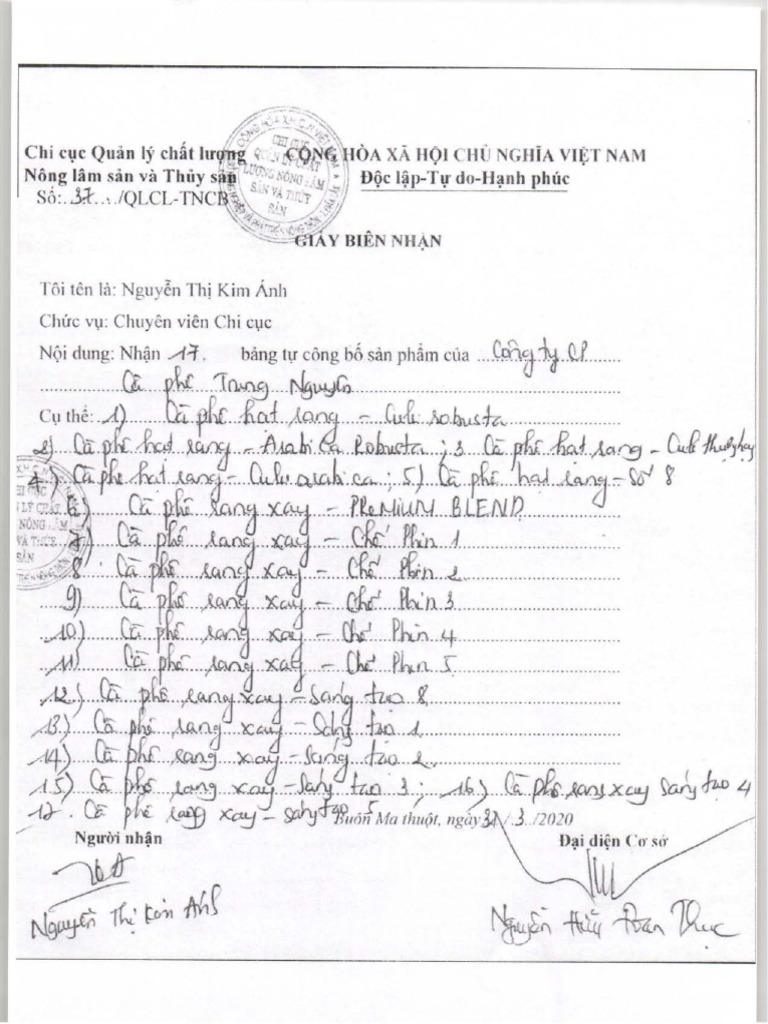 Chi cục Quản lý chất lượng CỘNG HÒA XÃ HỘI CHỦ NGHĨA VIỆT NAM
Nông lâm sản và Thủy sản Độc lập-Tự do-Hạnh phúc
Số: 37 /QLCL-TNCB
CHI CỤC
QUẢN LÝ CHẤT
LƯỢNG NÔNG LÂM
SẢN VÀ THỦY
SẢN
GIẤY BIÊN NHẬN
Tôi tên là: Nguyễn Thị Kim Ánh
Chức vụ: Chuyên viên Chi cục
Nội dung: Nhận 17. bảng tự công bố sản phẩm của Công ty CP
Cà phê Trung Nguyên
Cụ thể: 1) Cà phê hạt rang - Culi robusta
2) Cà phê hạt rang - Arabica Robusta ; 3 Cà phê hạt rang - Culi
4) Cà phê hạt rang - Culi arabica ; 5) Cà phê hạt rang - số 8
6) Cà phê rang xay - PReMIUM BLEND
7) Cà phê rang xay - Chế Phin 1
8 Cà phê rang xay - Chế Phin 2
9) Cà phê rang xay - Chế Phin 3
10) Cà phê rang xay - Chế Phin 4
11) Cà phê rang xay - Chế Phin 5
12) Cà phê rang xay - Sáng tạo 8
13) Cà phê rang xay - Sáng tạo 1
14) Cà phê rang xay - Sáng tạo 2
15) Cà phê rang xay - Sáng tạo 3 ; 16) Cà phê rang xay Sáng tạo 4
17. Cà phê rang xay - sáng tạo 5
Buôn Ma thuột, ngày 31 / 3 /2020
Người nhận Đại diện Cơ sở
Nguyễn Thị Kim Ánh Nguyễn Hữu Đoan Thục